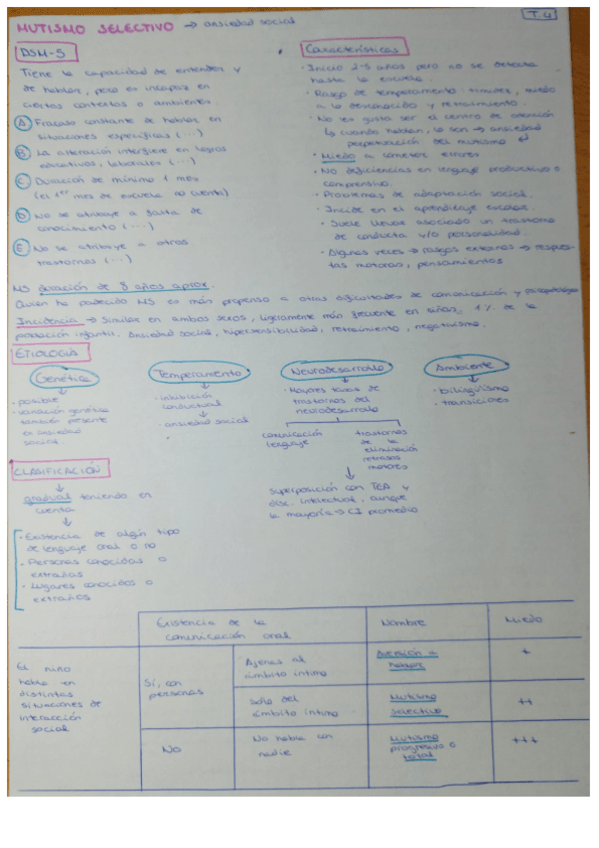 MUTISMO SELECTIVO → ansiedad social
T.4
DSM-5
Tiene la capacidad de entender y
de hablar, pero es incapaz en
ciertos contextos o ambientes.
A Fracaso constante de hablar en
situaciones específicas (...)
B La alteración interfiere en logros
educativos, laborales (...)
C Duración de mínimo 1 mes
(el 1er mes de escuela no cuenta)
D No se atribuye a falta de
conocimiento (...)
E No se atribuye a otros
trastornos (...)
Características
· Inicio 2-5 años pero no se detecta
hasta la escuela.
· Rasgo de temperamento: timidez, miedo
a la evaluación y retraimiento.
· No les gusta ser el centro de atención
↳ cuando hablan, lo son → ansiedad
perpetuación del mutismo ↵
· Miedo a cometer errores
· No deficiencias en lenguaje productivo o
comprensivo.
· Problemas de adaptación social.
· Incide en el aprendizaje escolar
· Suele llevar asociado un trastorno
de conducta y/o personalidad.
· Algunas veces → rasgos externos → respues-
tas motoras, pensamientos
MS duración de 8 años aprox.
Quien ha padecido MS es más propenso a otras dificultades de comunicación y psicopatológicas
Incidencia → Similar en ambos sexos, ligeramente más frecuente en niñas, 1% de la
población infantil. Ansiedad social, hipersensibilidad, retraimiento, negativismo.
ETIOLOGÍA
Genética
· posible
· variación genética
también presente
en ansiedad
social
Temperamento
· inhibición
conductual
· ansiedad social
Neurodesarrollo
· Mayores tasas de
trastornos del
neurodesarrollo
comunicación
lenguaje
trastornos
de la
eliminación
retrasos
motores
superposición con TEA y
disc. intelectual, aunque
la mayoría → CI promedio
Ambiente
· bilingüismo
· transiciones
CLASIFICACIÓN
gradual teniendo en
cuenta
· Existencia de algún tipo
de lenguaje oral o no
· Personas conocidas o
extrañas
· Lugares conocidos o
extraños
Existencia de la
comunicación oral
Nombre
Miedo
El niño
habla en
distintas
situaciones de
interacción
social
Sí, con
personas
Ajenas al
ámbito íntimo
Aversión a
hablar
+
Solo del
ámbito íntimo
Mutismo
selectivo
++
No
No habla con
nadie
Mutismo
progresivo o
total
+++